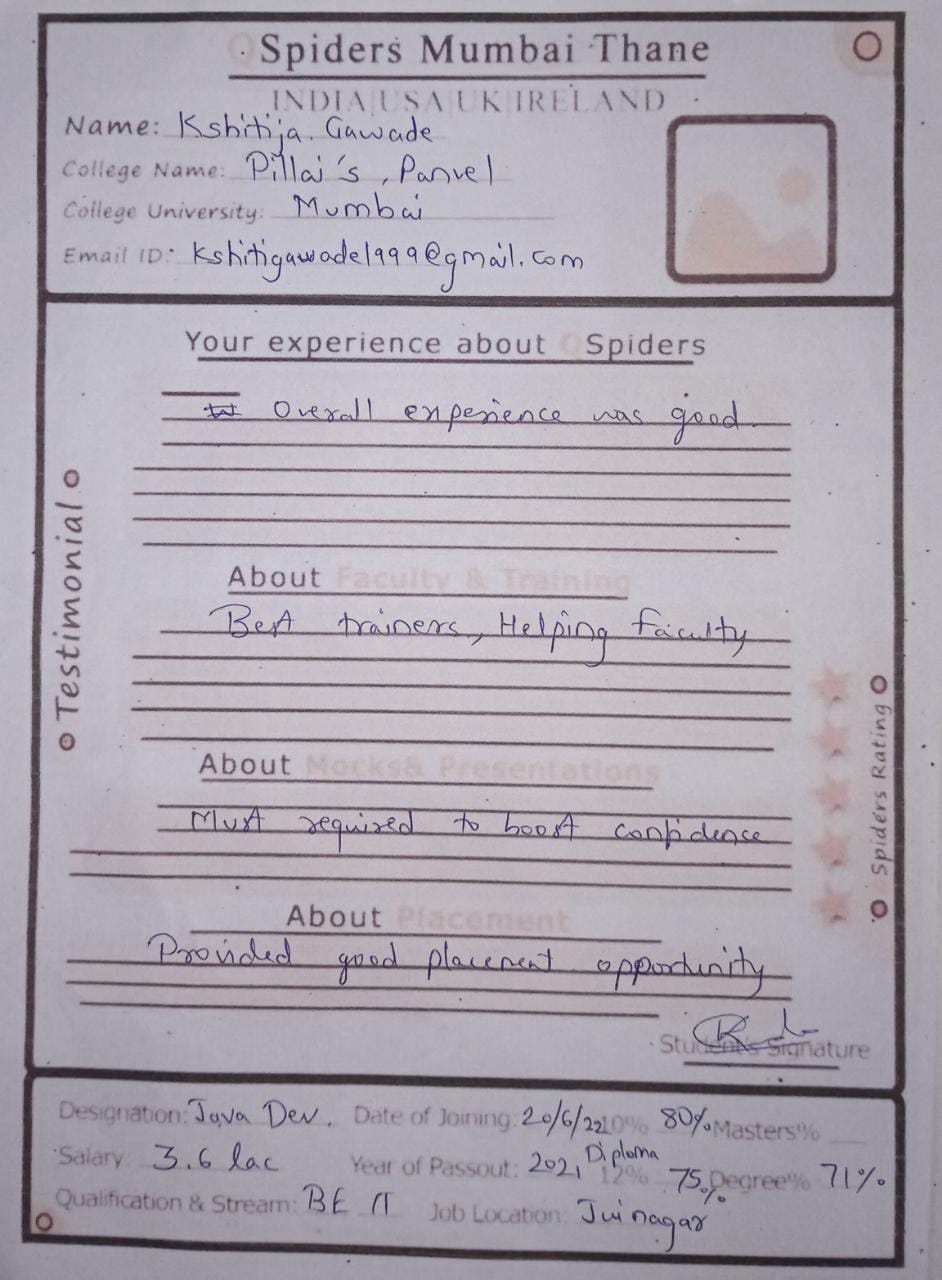 QSpiders Mumbai Thane
INDIA|USA|UK|IRELAND
Name: Kshitija Gawade
College Name: Pillai's, Panvel
College University: Mumbai
Email ID: kshitigawade1999@gmail.com
Your experience about QSpiders
Overall experience was good
Testimonial
About Faculty & Training
Best trainers, Helping faculty
About Mocks& Presentations
Must required to boost confidence
Spiders Rating
About Placement
Provided good placement opportunity
Student's Signature
Designation: Java Dev. Date of Joining: 20/6/22 10% 80% Masters%
Salary: 3.6 lac Year of Passout: 2021 Diploma 12% 75% Degree% 71%
Qualification & Stream: BE IT Job Location: Juinagar